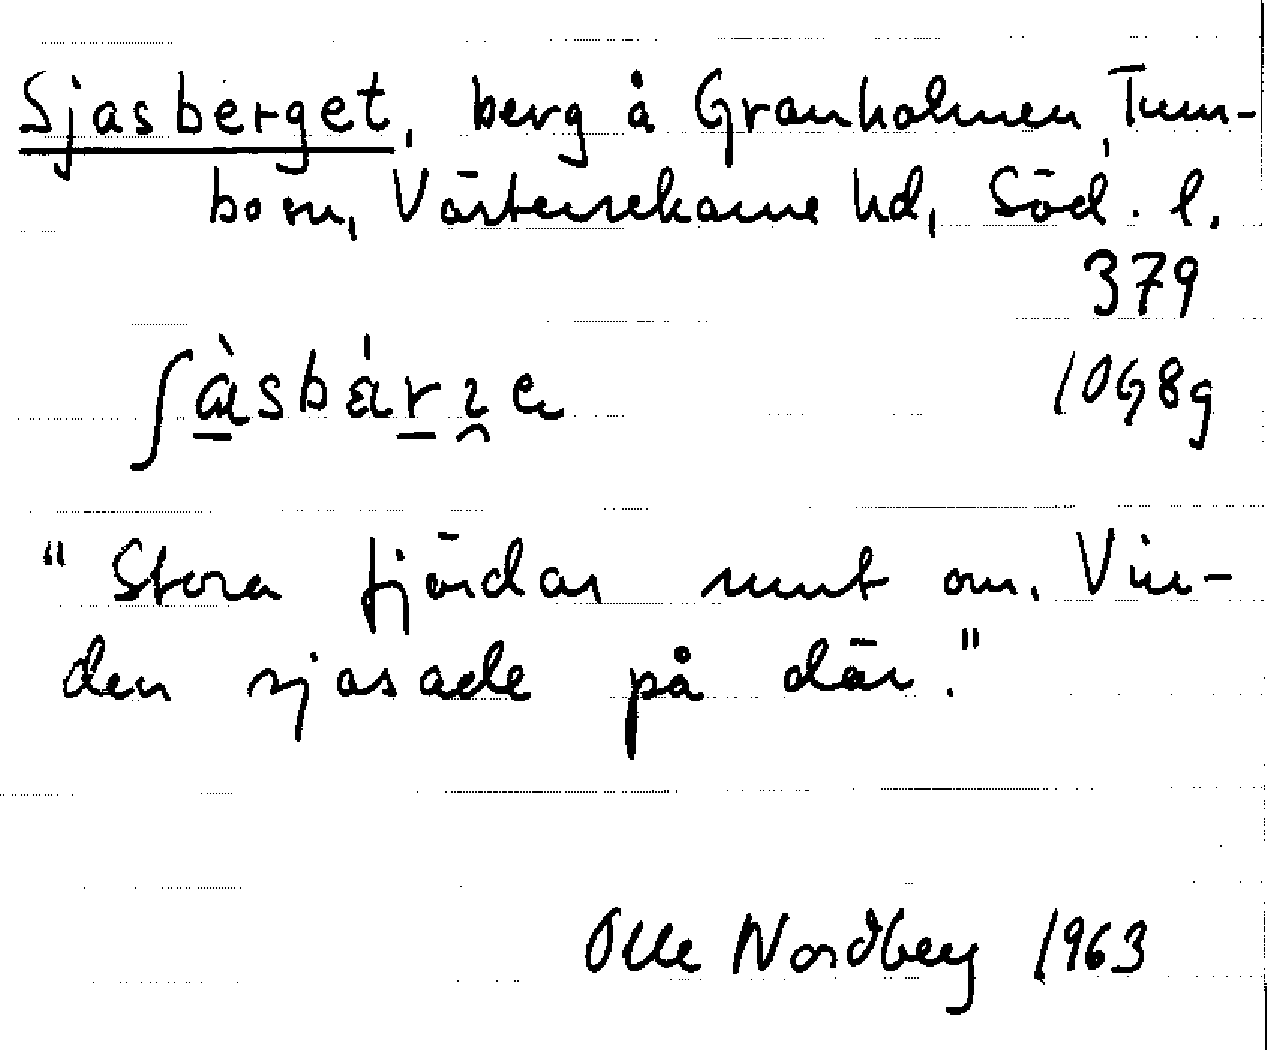 Sjasberget, berg å Granholmen, Tum-
bo sn, Västerrekarne hd, Söd. l.
379
10G8g
"Stora fjärdar runt om. Vin-
den sjasade på där."
Olle Nordberg 1963